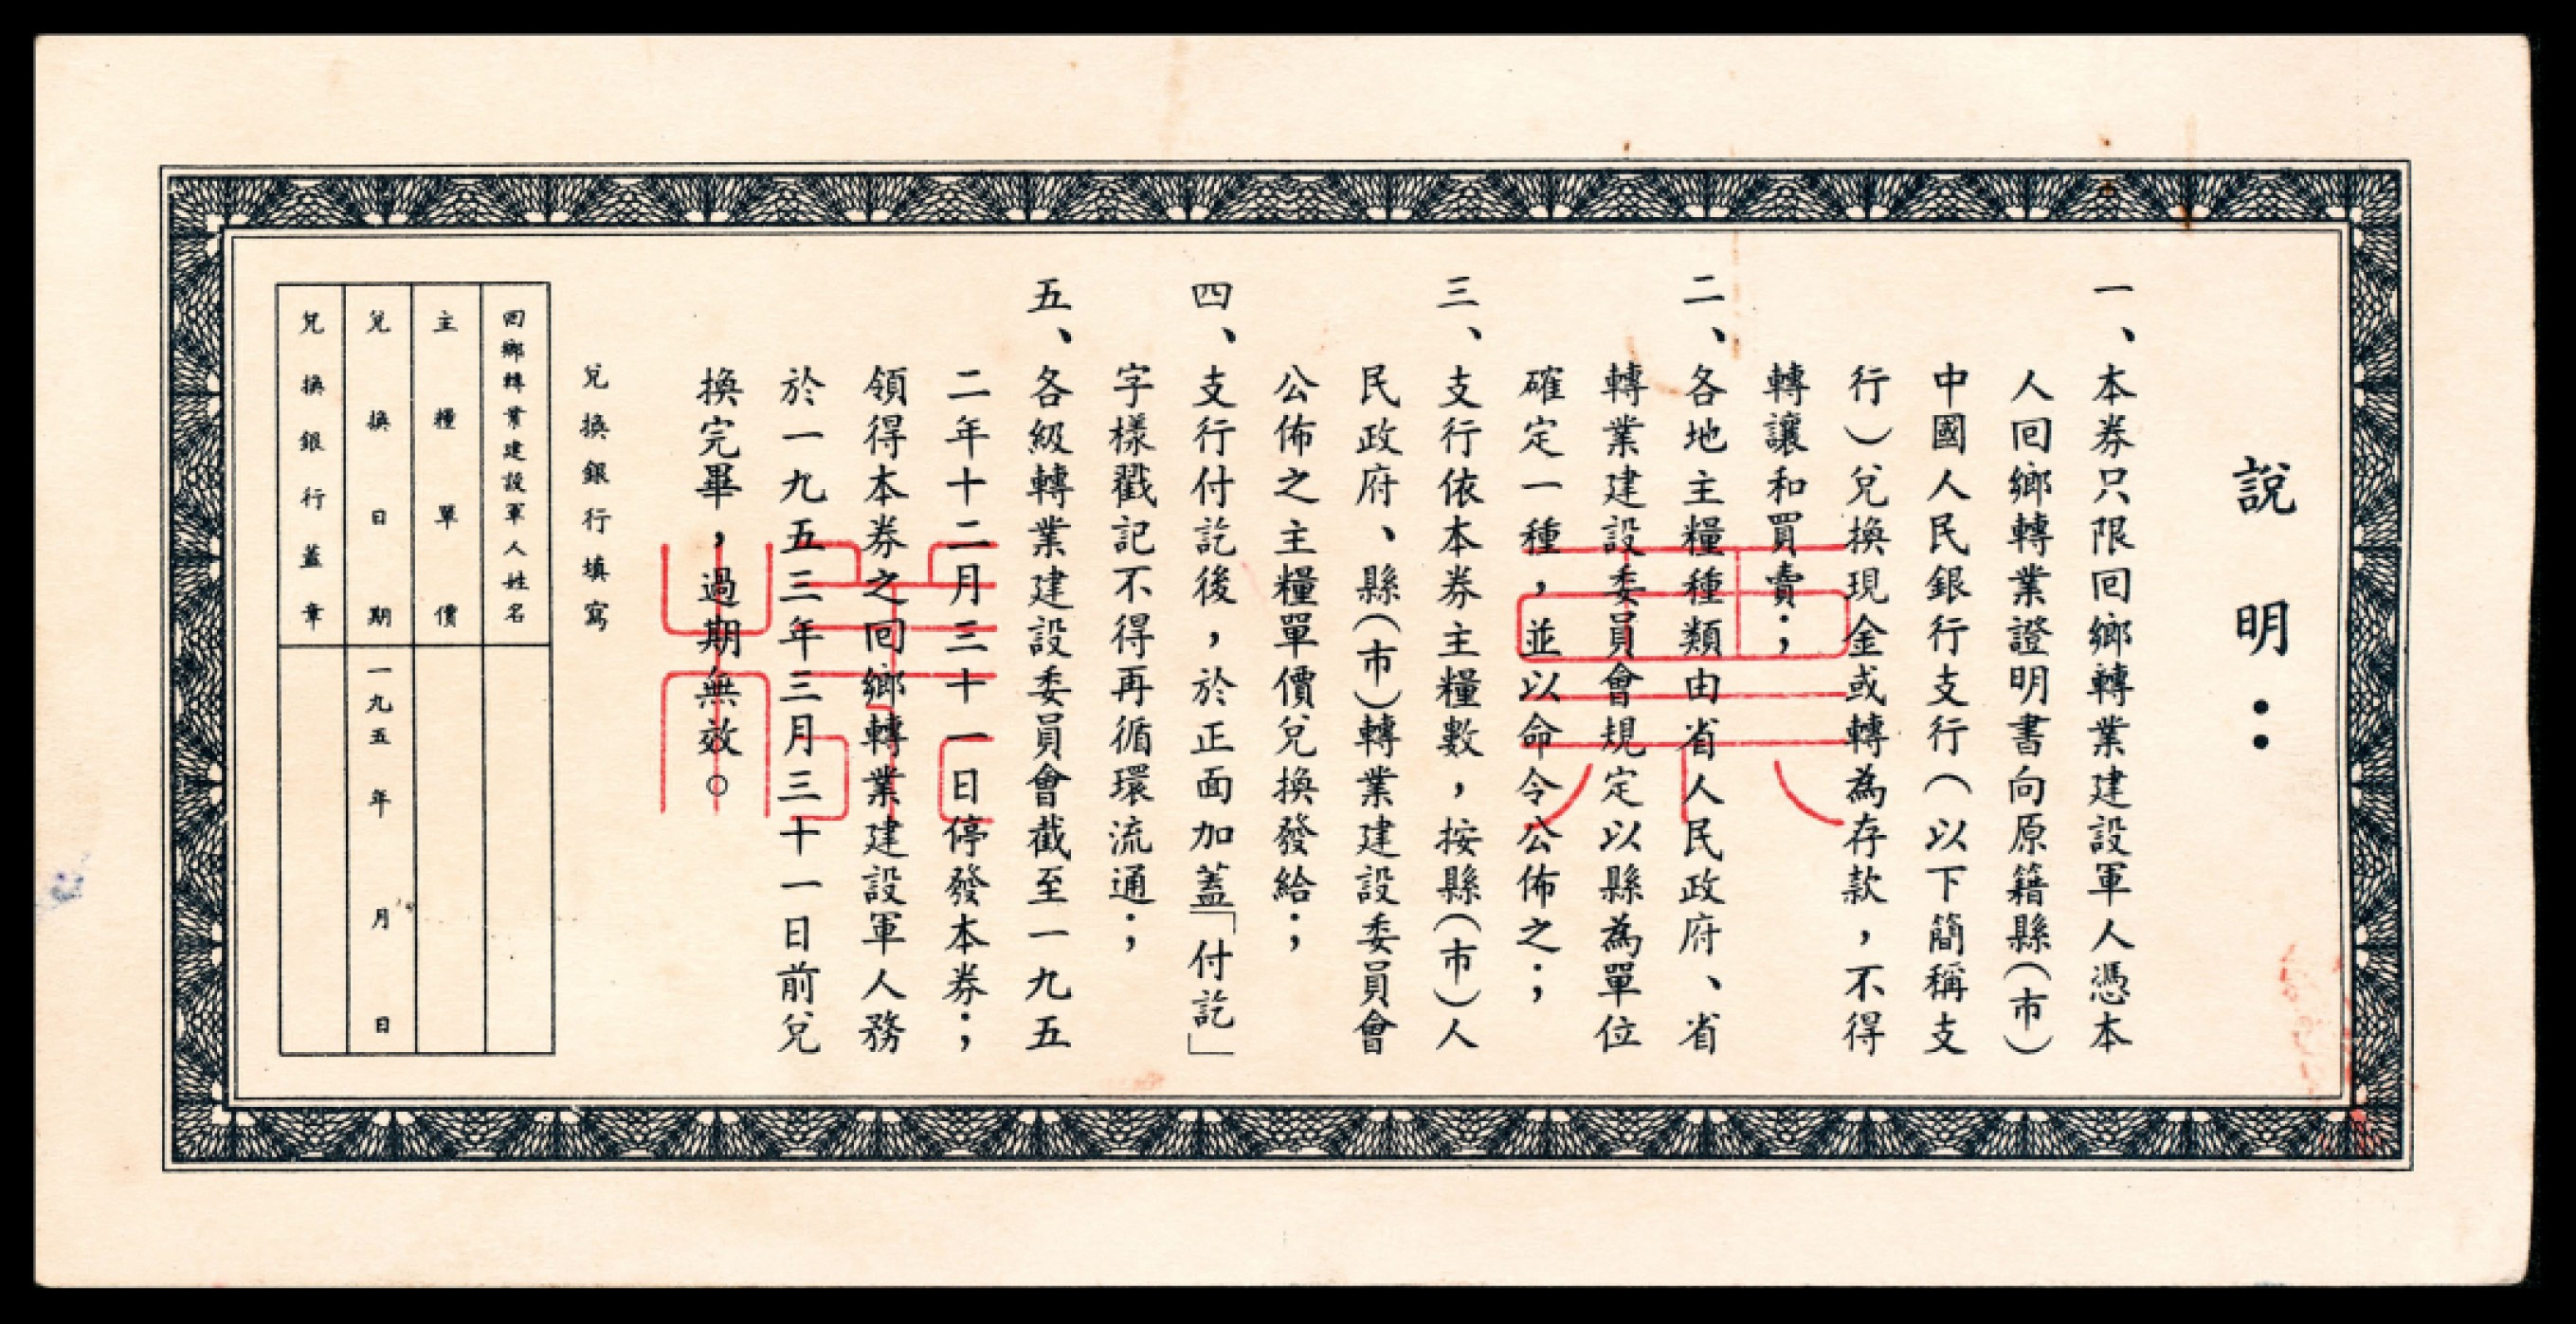 說明：
一、本券只限回鄉轉業建設軍人憑本
人回鄉轉業證明書向原籍縣（市）
中國人民銀行支行（以下簡稱支
行）兌換現金或轉為存款，不得
轉讓和買賣；
二、各地主糧種類由省人民政府、省
轉業建設委員會規定以縣為單位
確定一種，並以命令公佈之；
三、支行依本券主糧數，按縣（市）人
民政府、縣（市）轉業建設委員會
公佈之主糧單價兌換發給；
四、支行付訖後，於正面加蓋「付訖」
字樣戳記不得再循環流通；
五、各級轉業建設委員會截至一九五
二年十二月三十一日停發本券；
領得本券之回鄉轉業建設軍人務
於一九五三年三月三十一日前兌
換完畢，過期無效。
兌換銀行填寫
回鄉轉業建設軍人姓名
主糧單價
兌換日期 一九五 年 月 日
兌換銀行蓋章
票樣